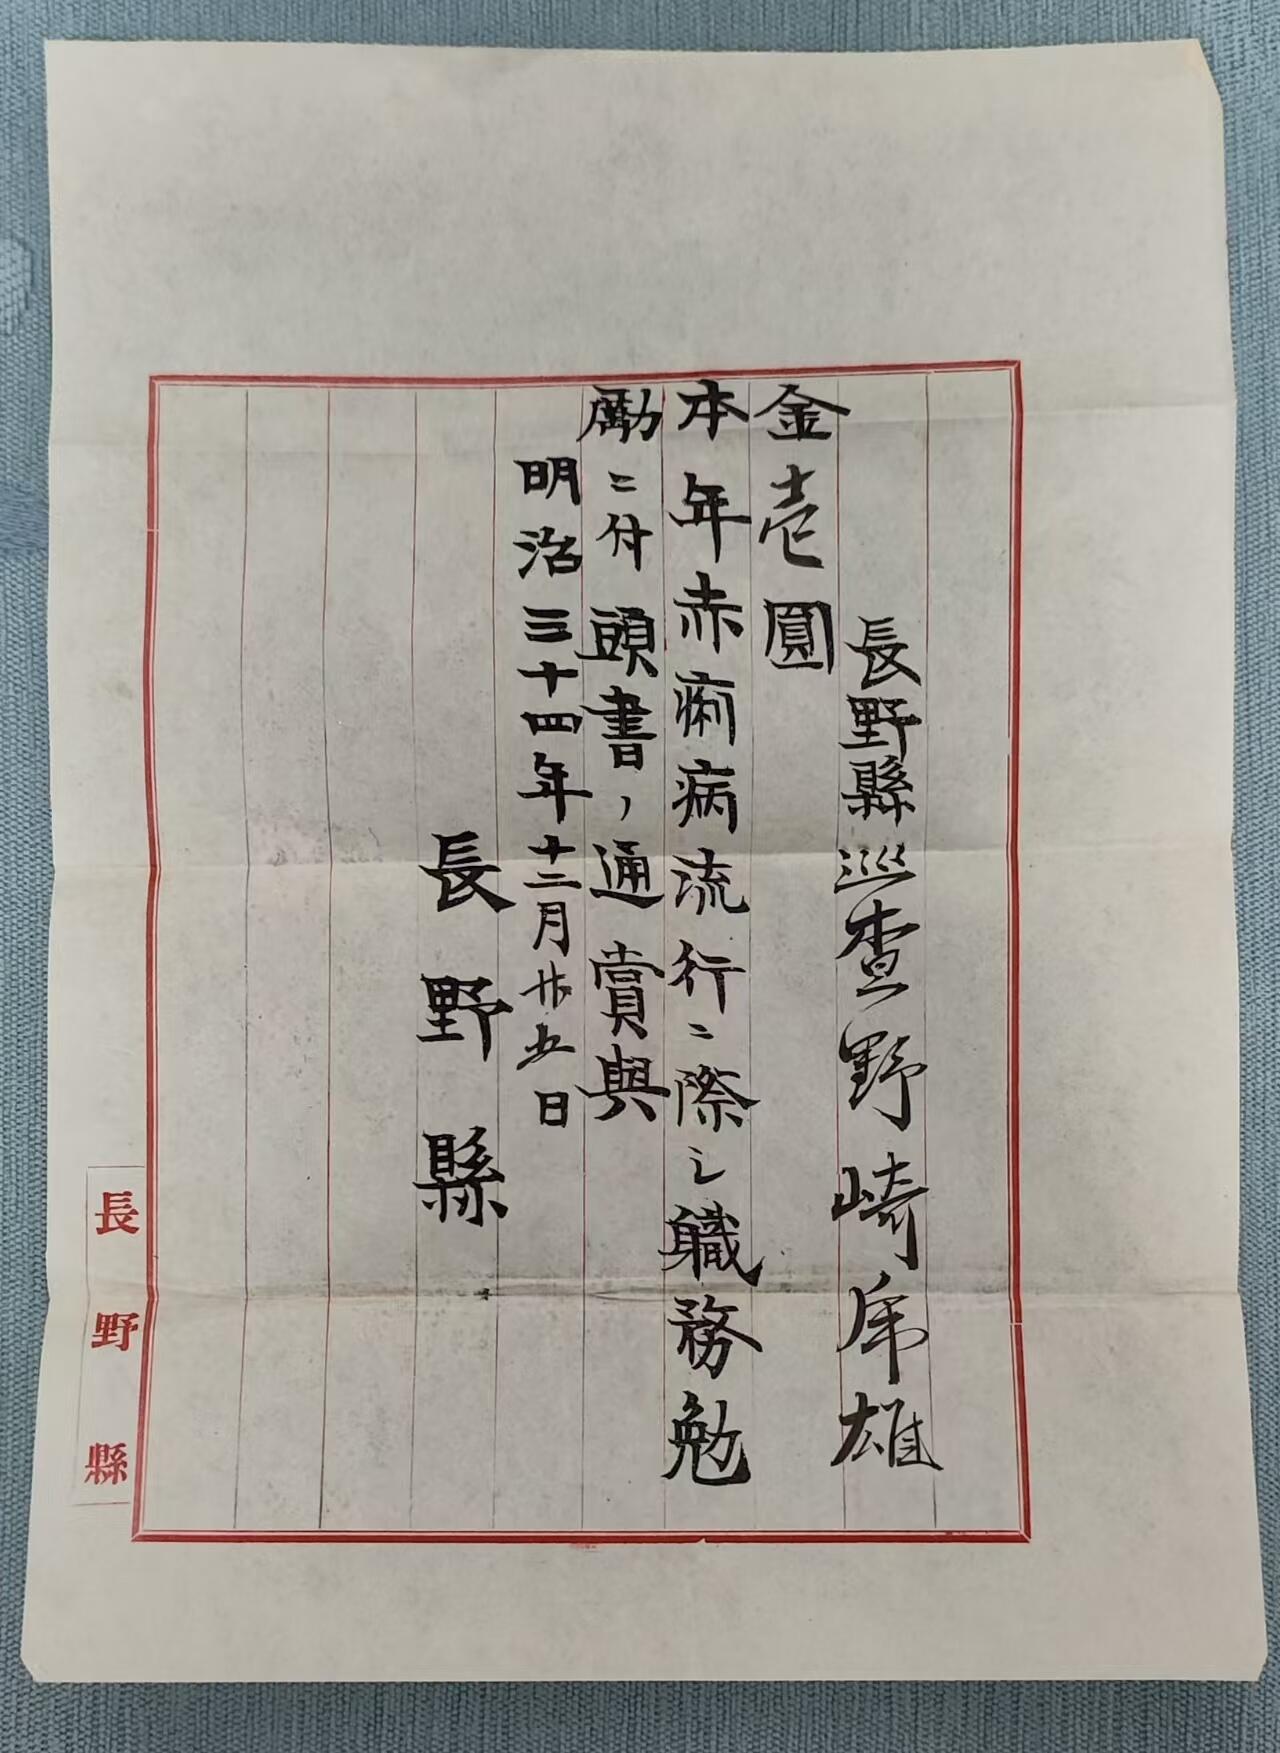 長野縣巡査野崎虎雄
金壱圓
本年赤痢病流行ニ際シ職務勉
勵ニ付頭書ノ通賞與
明治三十四年十二月廿五日
長野縣
長野縣